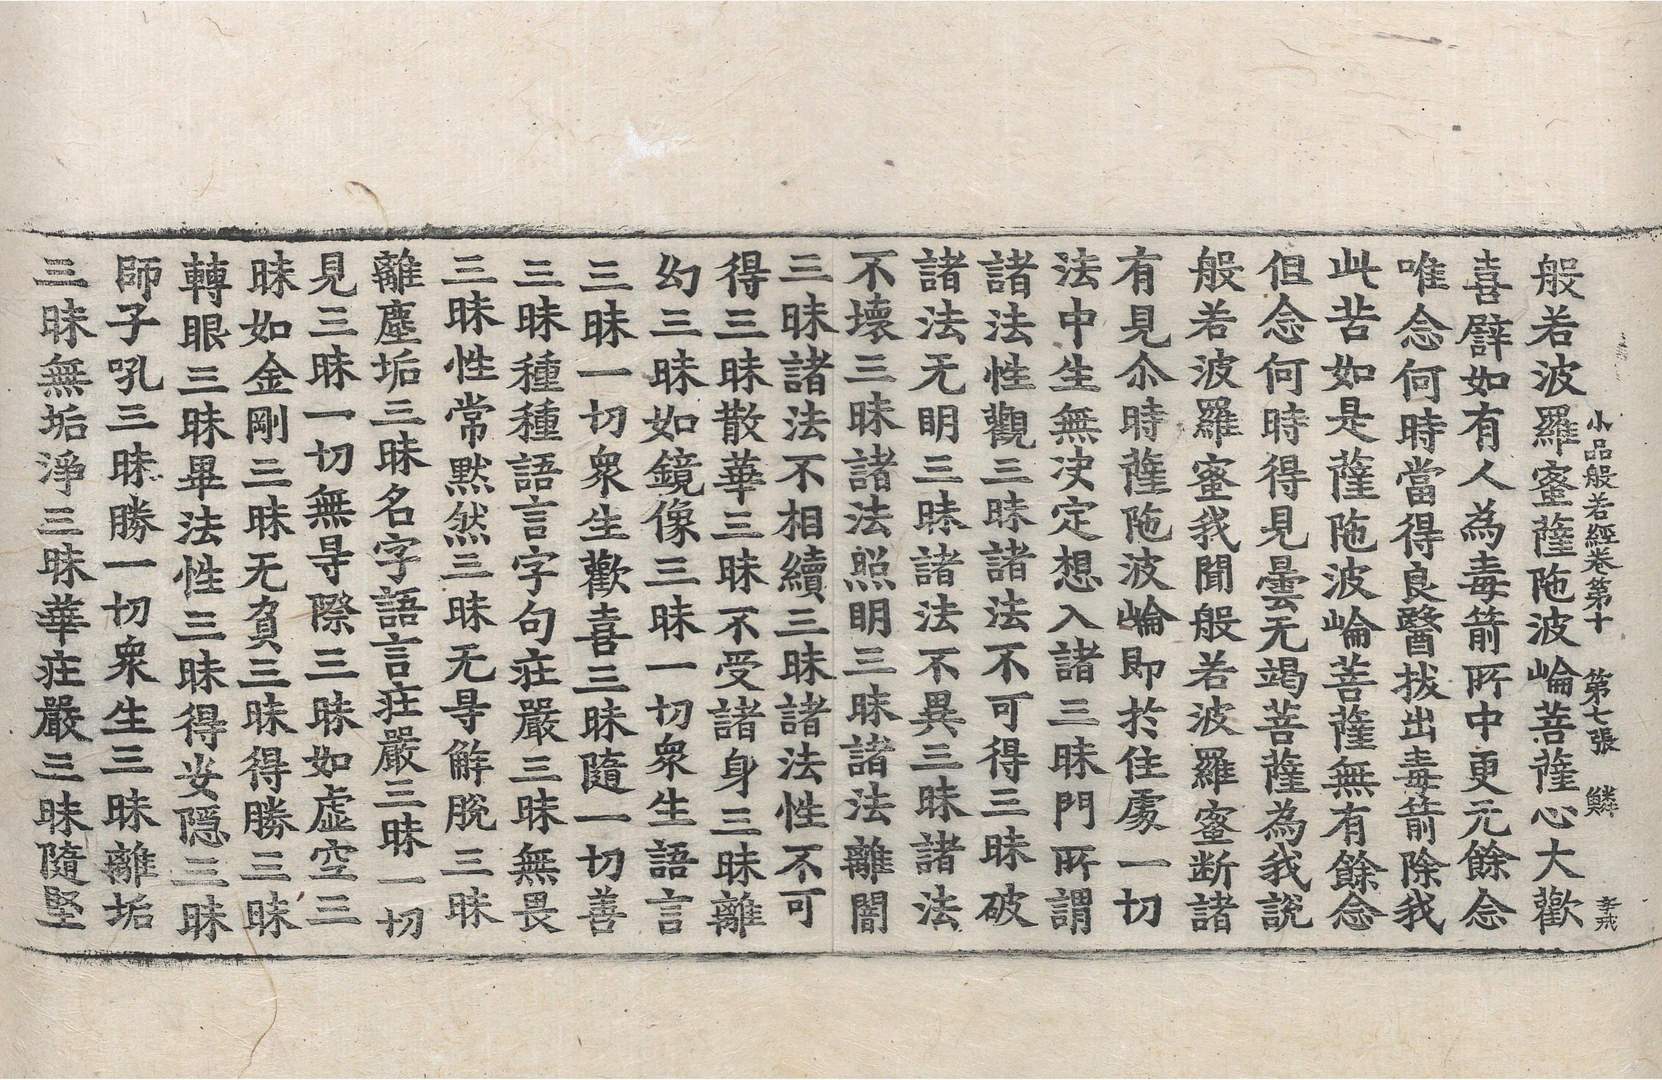 小品般若經卷第十　第七張　鱗　李戒
般若波羅蜜薩陁波崙菩薩心大歡
喜譬如有人為毒箭所中更无餘念
唯念何時當得良醫拔出毒箭除我
此苦如是薩陁波崙菩薩無有餘念
但念何時得見曇无竭菩薩為我說
般若波羅蜜我聞般若波羅蜜断諸
有見尒時薩陁波崙即於住處一切
法中生無决定想入諸三昧門所謂
諸法性觀三昧諸法不可得三昧破
諸法无明三昧諸法不異三昧諸法
不壞三昧諸法照明三昧諸法離闇
三昧諸法不相續三昧諸法性不可
得三昧散華三昧不受諸身三昧離
幻三昧如鏡像三昧一切衆生語言
三昧一切衆生歡喜三昧隨一切善
三昧種種語言字句莊嚴三昧無畏
三昧性常默然三昧无㝵解脫三昧
離塵垢三昧名字語言莊嚴三昧一切
見三昧一切無㝵際三昧如虛空三
昧如金剛三昧无負三昧得勝三昧
轉眼三昧畢法性三昧得安隱三昧
師子吼三昧勝一切衆生三昧離垢
三昧無垢淨三昧華莊嚴三昧隨堅